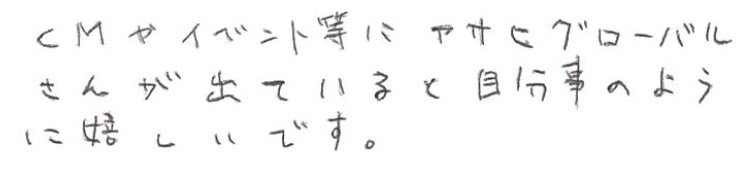 CMやイベント等に アサヒグローバル
さんが出ていると自分事のよう
に嬉しいです。